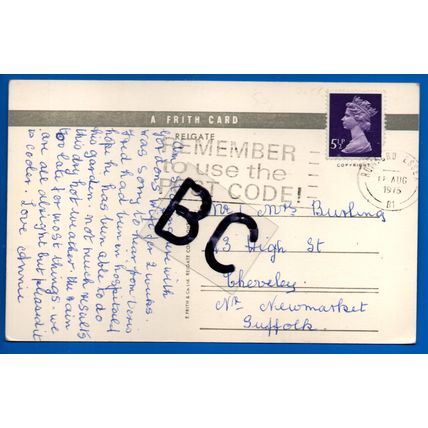 A FRITH CARD
REIGATE
REMEMBER
to use the
POST CODE!
5½P
COPYRIGHT
ROMFORD ESSEX
AUG
1975
B1
BC
Mr & Mrs Burling
3 High St
Cheveley
Nr Newmarket
Suffolk.
F. FRITH & Co. Ltd. REIGATE
with
2 weeks.
was sorry to hear from Doris
Fred had been in hospital &
hope he has been able to do
his garden. not much results
this dry hot weather. the rain
too late for most things. we
are all alright but pleased it
is cooler. Love Annie